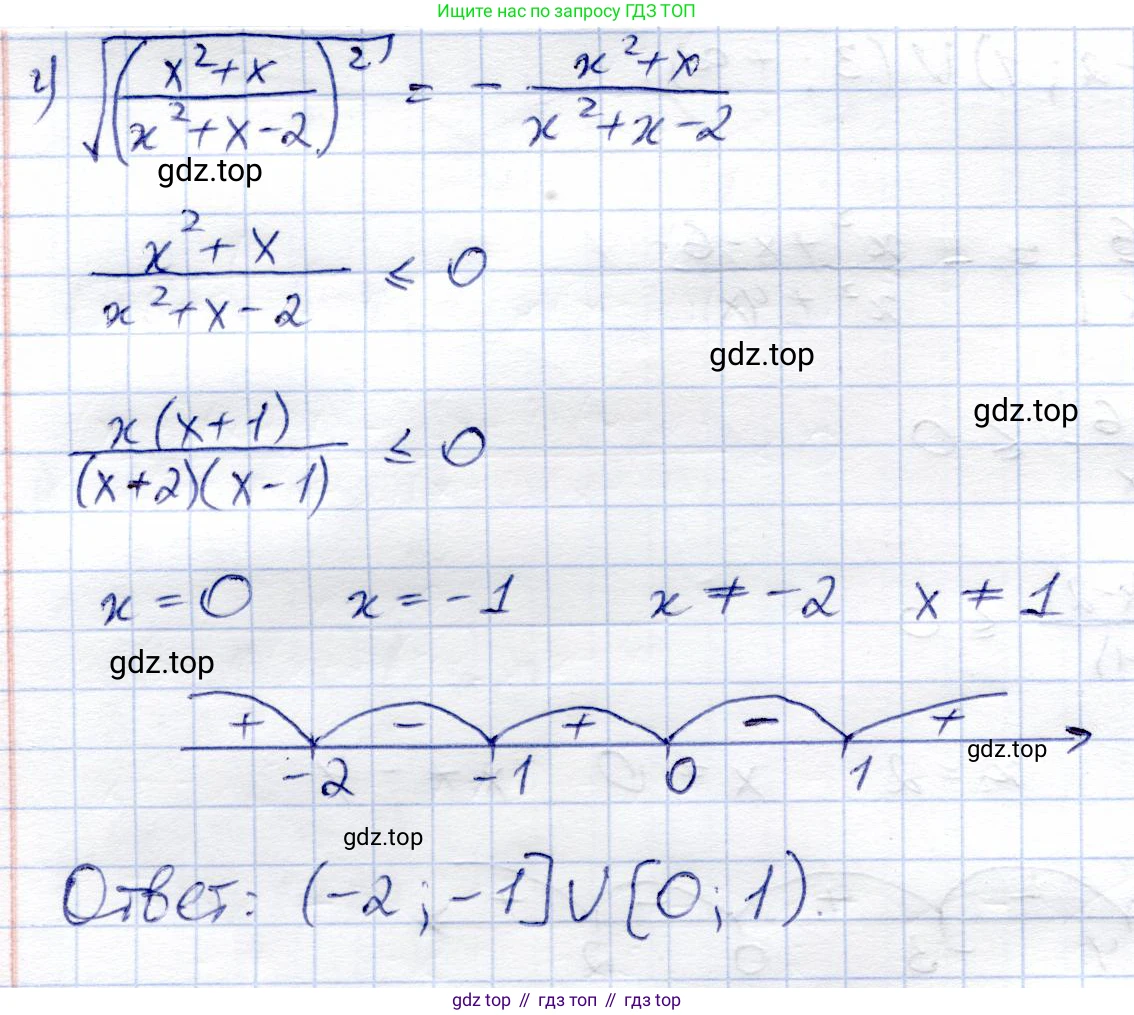 Ищите нас по запросу ГДЗ ТОП
г) √((x²+x)/(x²+x-2))² = - (x²+x)/(x²+x-2)
gdz.top
(x²+x)/(x²+x-2) ≤ 0
gdz.top
gdz.top
x(x+1)/((x+2)(x-1)) ≤ 0
x = 0 x = -1 x ≠ -2 x ≠ 1
gdz.top
+ - + - +
gdz.top
-2 -1 0 1
gdz.top
Ответ: (-2; -1] ∪ [0; 1).
gdz top // гдз топ // гдз top